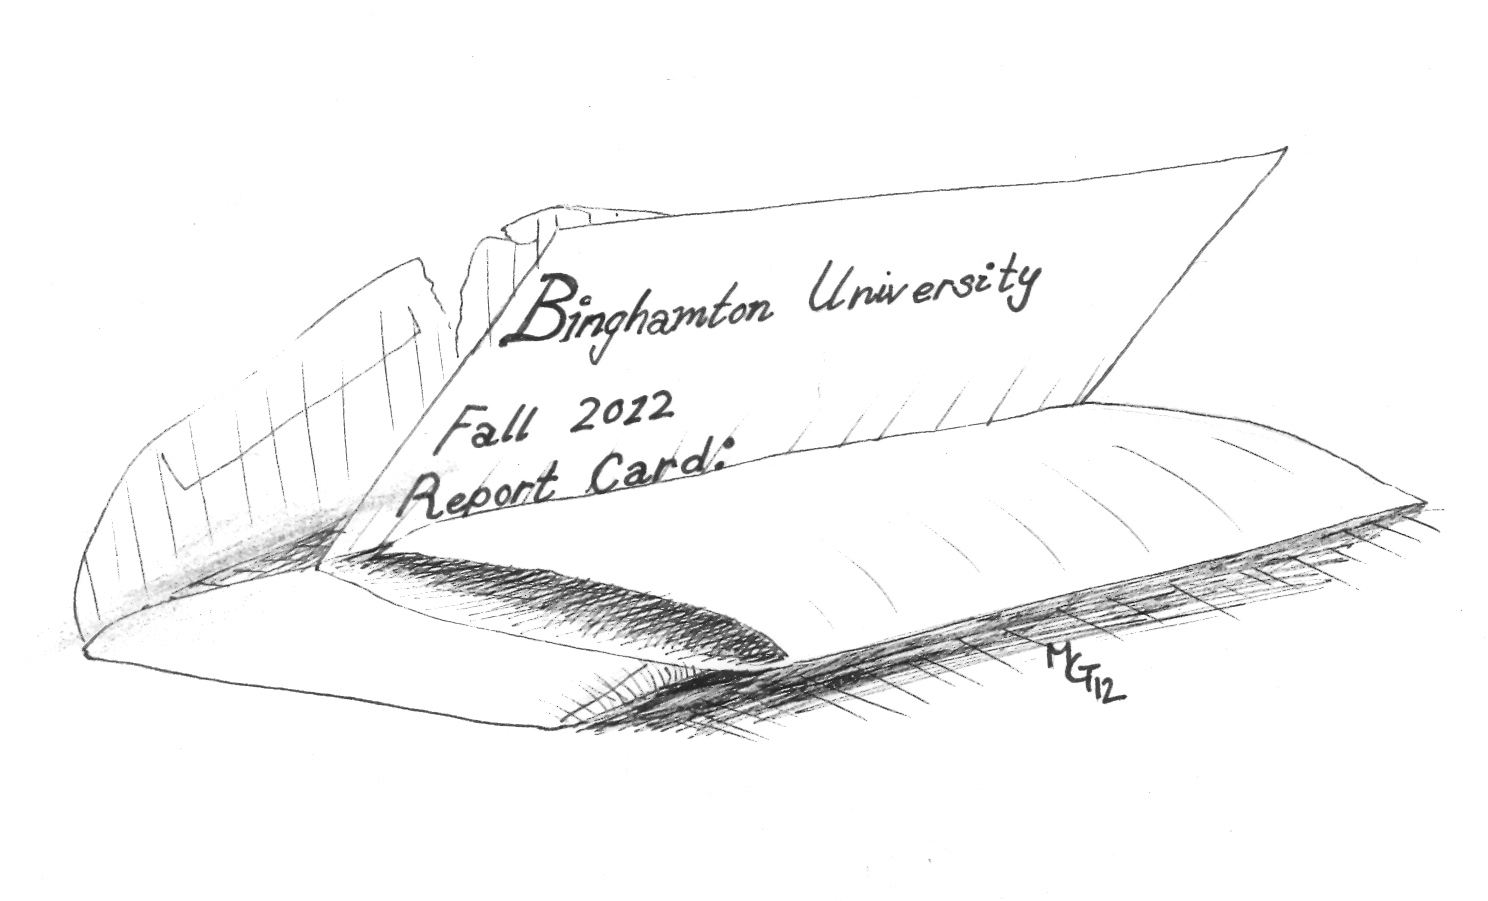 Binghamton University
Fall 2012
Report Card:
MGT12